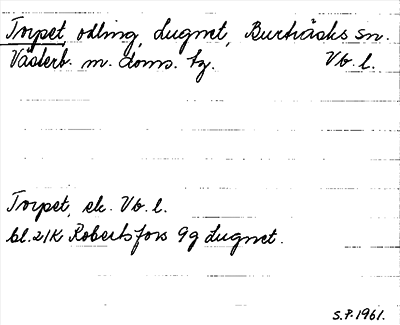 Torpet, odling, Lugnet, Burträsks sn.
Västerb. m. doms. tg. Vb. l.
Torpet, ek. Vb. l.
bl. 21K Robertsfors 9g Lugnet.
S.P. 1961.